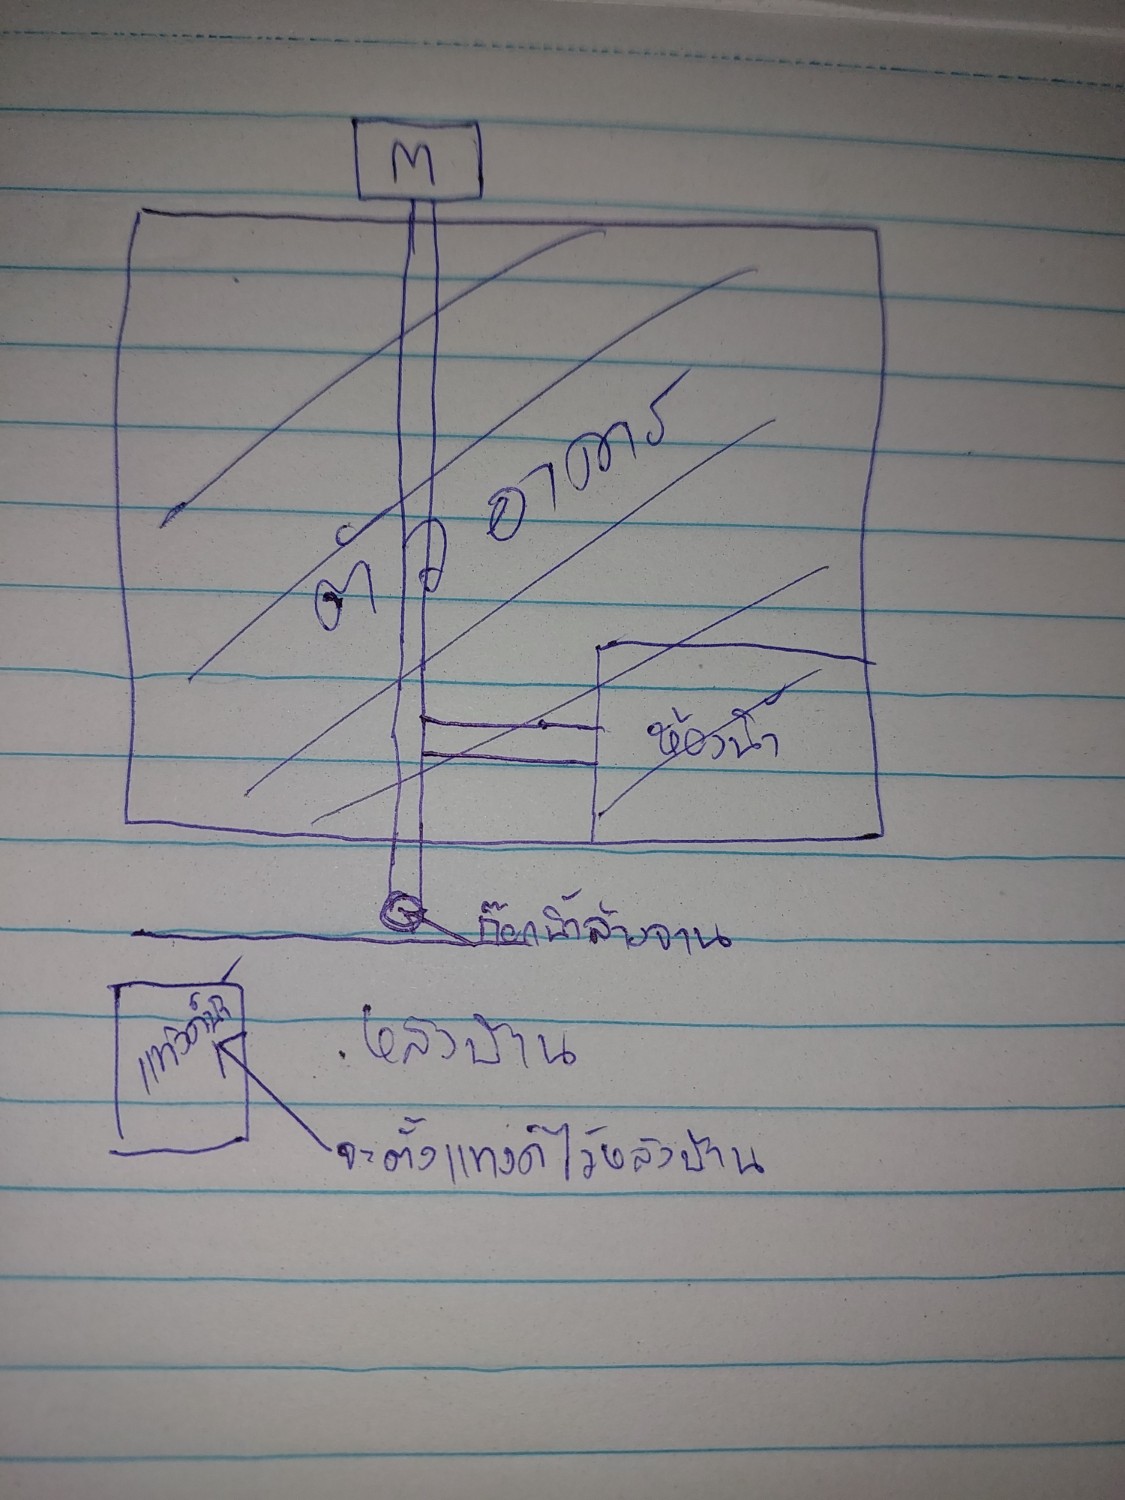 M
ตัวอาคาร
ห้องน้ำ
ก๊อกน้ำล้างจาน
แทงค์น้ำ
หลังบ้าน
จะตั้งแทงค์ไว้หลังบ้าน